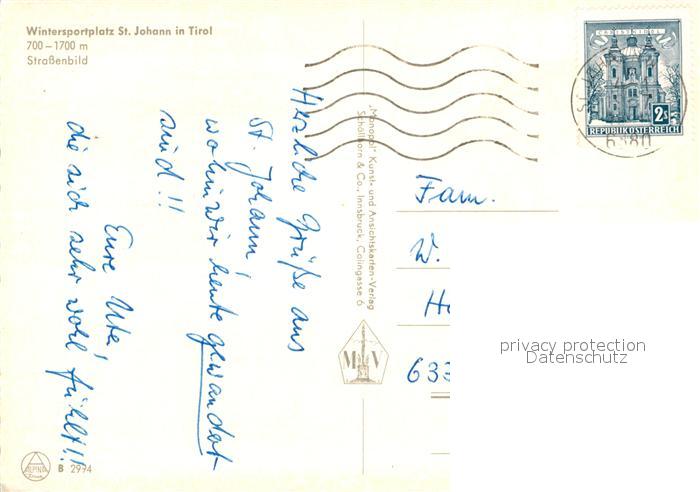 Wintersportplatz St. Johann in Tirol
700 – 1700 m
Straßenbild
Herzliche Grüße aus
St. Johann,
wohin wir heute gewandert
sind!!
Eure Uta,
die sich sehr wohl fühlt!!
„Monopol" Kunst- und Ansichtskarten-Verlag
Schöllhorn & Co., Innsbruck, Colingasse 6
M V
CHRISTKINDL
2S
REPUBLIK ÖSTERREICH
6380
Fam.
W.
H
633
privacy protection
Datenschutz
ALPINA
B 2994